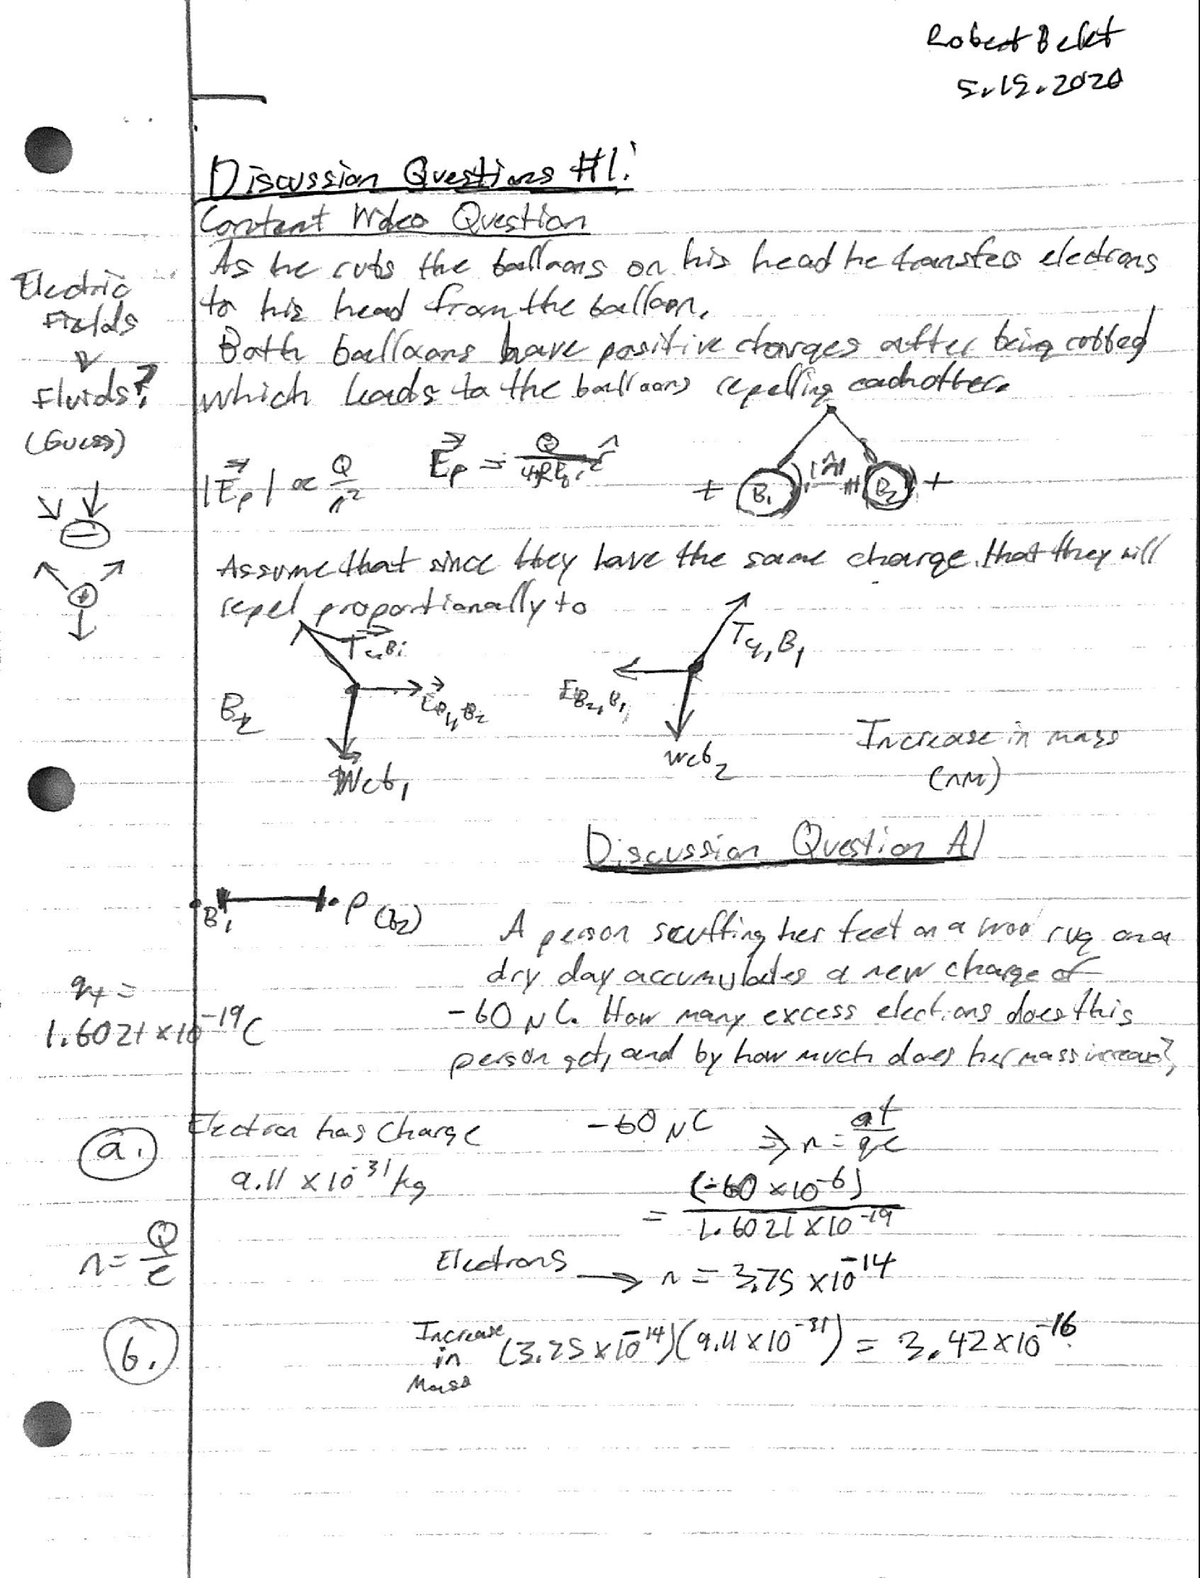 Robert Belet
5.15.2020
Discussion Questions #1:
Content Video Question
As he rubs the balloons on his head he transfers electrons
to his head from the balloon.
Both balloons have positive charges after being robbed
which leads to the balloons repelling eachother.
Electric
Fields
&
Fluids?
(Guess)
|E⃗p| ∝ Q/r²
E⃗p = Q/4πε₀r² r̂
+ B₁ |r̂| B₂ +
− 
+
Assume that since they have the same charge that they will
repel proportionally to
B₂
E⃗B₁,B₂
Wcb₁
Tc,B₁
EB₂,B₁
Wcb₂
Increase in mass
(nM)
Discussion Question A1
B₁ P(b₂)
A person scuffing her feet on a wool rug on a
dry day accumulates a new charge of
-60 μC. How many excess electrons does this
person get, and by how much does her mass increase?
q+ =
1.6021 x10⁻¹⁹C
a.
Electron has Charge
9.11 x10⁻³¹ kg
-60 μC ⇒ n = qt/qe
= (-60 x10⁻⁶)/1.6021 x10⁻¹⁹
n = Q/e
Electrons → n = 3.75 x10⁻¹⁴
b.
Increase
in
Mass
(3.75 x10⁻¹⁴)(9.11 x10⁻³¹) = 3.42x10⁻¹⁶